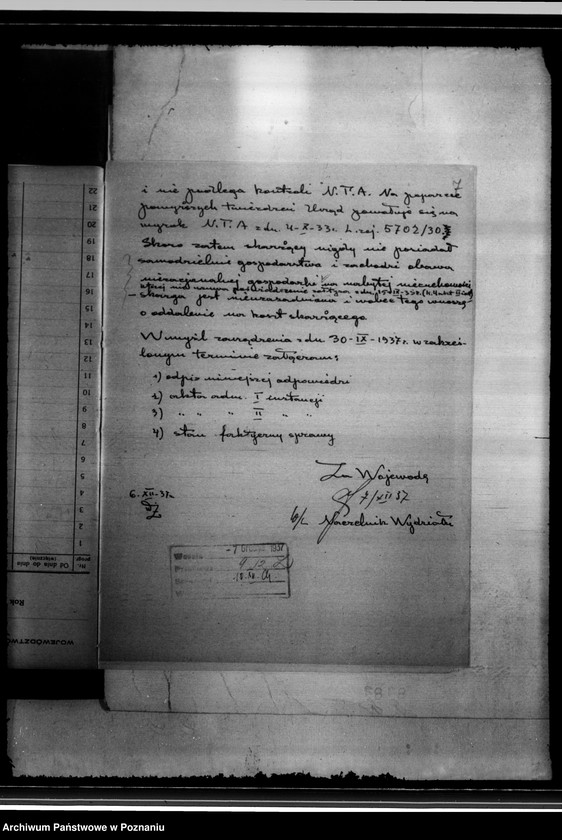 7
i nie podlega kontroli N.T.A. Na poparcie
powyższych twierdzeń Urząd powołuje się na
wyrok N.T.A z dn. 4-X-33r. L.rej. 5702/30
Skoro zatem skarżący nigdy nie posiadał
samodzielnie gospodarstwa i zachodzi obawa
nieracjonalnej gospodarki na nabytej nieruchomości
skarga jest nieuzasadniona i wobec tego wnoszę
o oddalenie na koszt skarżącego
W myśl zarządzenia z dn 30-IX-1937r. w zakreś-
lonym terminie załączam:
1) odpis niniejszej odpowiedzi
2) akta adm. I instancji
3) " " " II " "
4) stan faktyczny sprawy
Za Wojewodę
6.XII.37r.
7/XII 37
Naczelnik Wydziału
-7 Grudz. 1937
22
21
20
19
18
17
16
15
14
13
12
11
10
9
8
7
6
5
4
3
2
1
Nr.
Od dnia do dnia
(włącznie)
Rok
WOJEWÓDZTWO
Archiwum Państwowe w Poznaniu